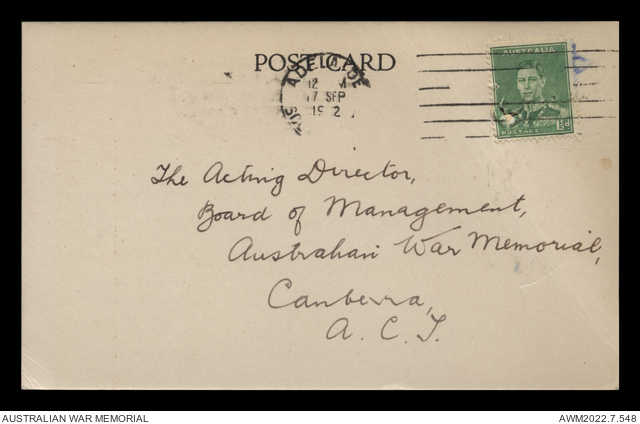 POST CARD
ADELAIDE
12 M
17 SEP
19 2
AUSTRALIA
POSTAGE
1½d
The Acting Director,
Board of Management,
Australian War Memorial,
Canberra,
A. C. T.
AUSTRALIAN WAR MEMORIAL
AWM2022.7.548